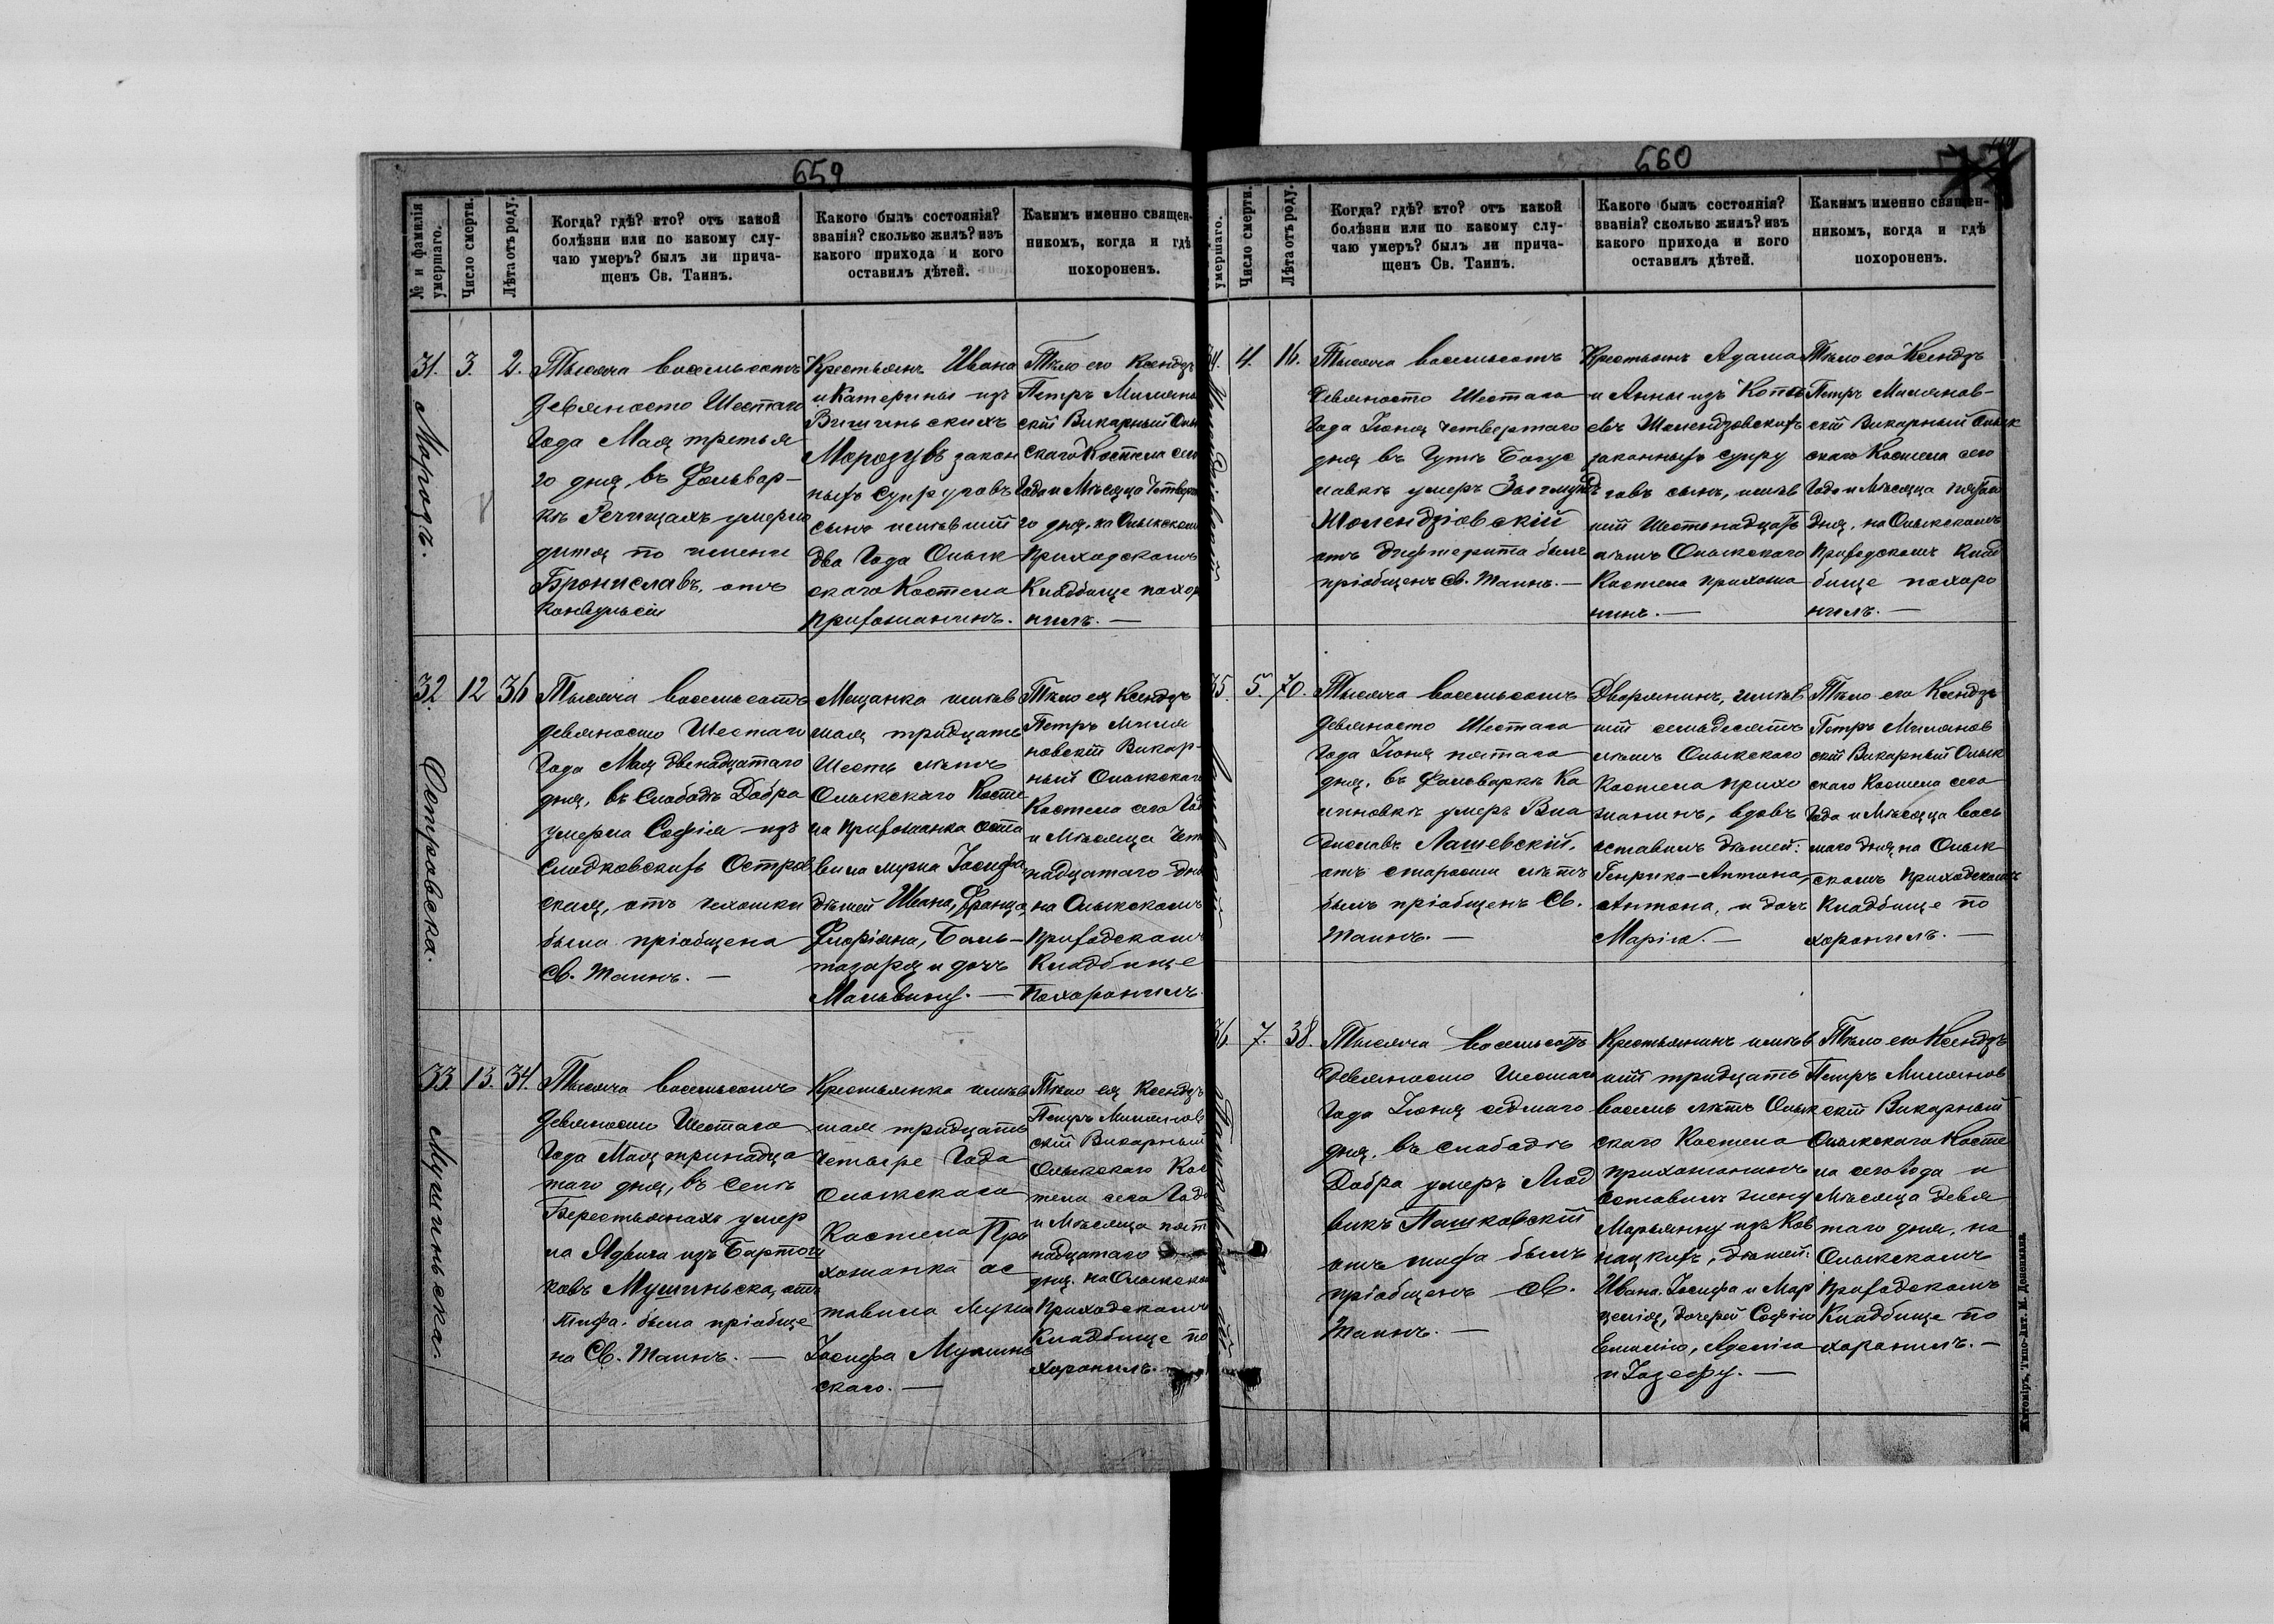 659
№ и фамилія умершаго.
Число смерти.
Лѣта отъ роду.
Когда? гдѣ? кто? отъ какой
болѣзни или по какому слу-
чаю умеръ? былъ ли прича-
щенъ Св. Таинъ.
Какого былъ состоянія?
званія? сколько жилъ? изъ
какого прихода и кого
оставилъ дѣтей.
Какимъ именно священ-
никомъ, когда и гдѣ
похороненъ.
31.
Морозъ.
3.
2.
Тысяча восемьсотъ
девяносто Шестаго
Года Мая третья
го дня, въ Фольвар-
кѣ Речищахъ умерло
дитя по имени
Брониславъ, отъ
конвульсіи
Крестьянъ Ивана
и Катерины изъ
Вишиньскихъ
Морозувъ закон
ныхъ супруговъ
сынъ имѣвшій
два Года Олык
скаго Костела
прихожанинъ.
Тѣло его Ксендзъ
Петръ Милянов
скій Викарный Олык
скаго Костела сего
Года и Мѣсяца Четверта
го дня, на Олыкскомъ
Приходскомъ
Кладбище похоро
нилъ. —
32.
Островска.
12
36
Тысяча восемьсотъ
девяносто Шестаго
Года Мая двенадцатаго
дня, въ Слободѣ Добра
умерла Софія изъ
Сладковскихъ Островская, отъ чахотки
была пріобщена
Св. Таинъ. —
Мещанка имѣв
шая тридцать
Шесть лѣтъ
Олыкскаго Косте
ла прихожанка оста
вила мужа Іосифа,
дѣтей Ивана, Франца,
Флоріана, Баль-
тазара и дочь
Мальвину. —
Тѣло ея Ксендзъ
Петръ Миля
новскій Викар-
ный Олыкскаго
Костела сего Года
и Мѣсяца Чет
надцатаго дня
на Олыкскомъ
Приходскомъ
Кладбище
Похоронилъ.
33.
Мушиньска.
13.
34.
Тысяча восемьсотъ
девяносто Шестаго
Года Мая тринадца
таго дня, въ селѣ
Берестьянахъ умер
ла Ядвига изъ
Мушиньска, отъ
тифа. была пріобще
на Св. Таинъ. —
Крестьянка имѣв
шая тридцать
четыре Года
Олыкскаго
Костела При
хожанка ос
тавила мужа
Іосифа Мушинь
скаго. —
Тѣло ея Ксендзъ
Петръ Милянов
скій Викарный
Олыкскаго Кос
тела сего Года
и Мѣсяца пят
надцатаго
дня. на Олыкском
Приходскомъ
Кладбище по
хоронилъ. —
560
умершаго.
Число смерти.
Лѣта отъ роду.
Когда? гдѣ? кто? отъ какой
болѣзни или по какому слу-
чаю умеръ? былъ ли прича-
щенъ Св. Таинъ.
Какого былъ состоянія?
званія? сколько жилъ? изъ
какого прихода и кого
оставилъ дѣтей.
Какимъ именно священ-
никомъ, когда и гдѣ
похороненъ.
34.
4.
16.
Тысяча восемьсотъ
девяносто Шестаго
Года Іюня четвертаго
дня въ Гутѣ Богус
лавкѣ умеръ Зыгмундъ
Шолендзіовскій
отъ дифтерита былъ
пріобщенъ Св. Таинъ. —
Крестьянъ Адама
и Анны изъ
Шолендзовскихъ
законныхъ супру
говъ сынъ, имѣв
шій Шестьнадцать
лѣтъ Олыкскаго
Костела прихожа
нинъ. —
Тѣло его Ксендзъ
Петръ Милянов-
скій Викарный Олык
скаго Костела сего
Года и Мѣсяца пятаго
дня, на Олыкскомъ
Приходскомъ Клад
бище похоро
нилъ. —
35.
5.
70.
Тысяча восемьсотъ
девяносто Шестаго
Года Іюня пятаго
дня, въ Фольваркѣ Ка
линовкѣ умеръ Вла
диславъ Лашевскій,
отъ старости лѣтъ
былъ пріобщенъ Св.
Таинъ. —
Дворянинъ, имѣв
шій семьдесятъ
лѣтъ Олыкскаго
Костела прихо
жанинъ, вдовъ
оставилъ дѣтей:
Генриха-Антона,
Антона, и дочь
Марію. —
Тѣло его Ксендзъ
Петръ Милянов
скій Викарный Олык
скаго Костела сего
Года и Мѣсяца вось
маго дня на Олык
скомъ Приходскомъ
Кладбище по
хоронилъ. —
36.
7.
38.
Тысяча восемьсотъ
девяносто Шестаго
Года Іюня седмаго
дня, въ слободѣ
Добра умеръ Люд
викъ Пашковскій
отъ тифа былъ
пріобщенъ Св.
Таинъ. —
Крестьянинъ имѣв
шій тридцать
восемь лѣтъ Олык
скаго Костела
прихожанинъ
оставилъ жену
Марьянну изъ Ков
нацкихъ, дѣтей:
Ивана, Іосифа и Мар
целія, дочерей Софію
Емилію, Аделію
и Іозефу. —
Тѣло его Ксендзъ
Петръ Милянов
скій Викарный
Олыкскаго Косте
ла сего Года и
Мѣсяца девя
таго дня, на
Олыкскомъ
Приходскомъ
Кладбище по
хоронилъ. —
Житоміръ, Типо-Лит. М. Дененмана.